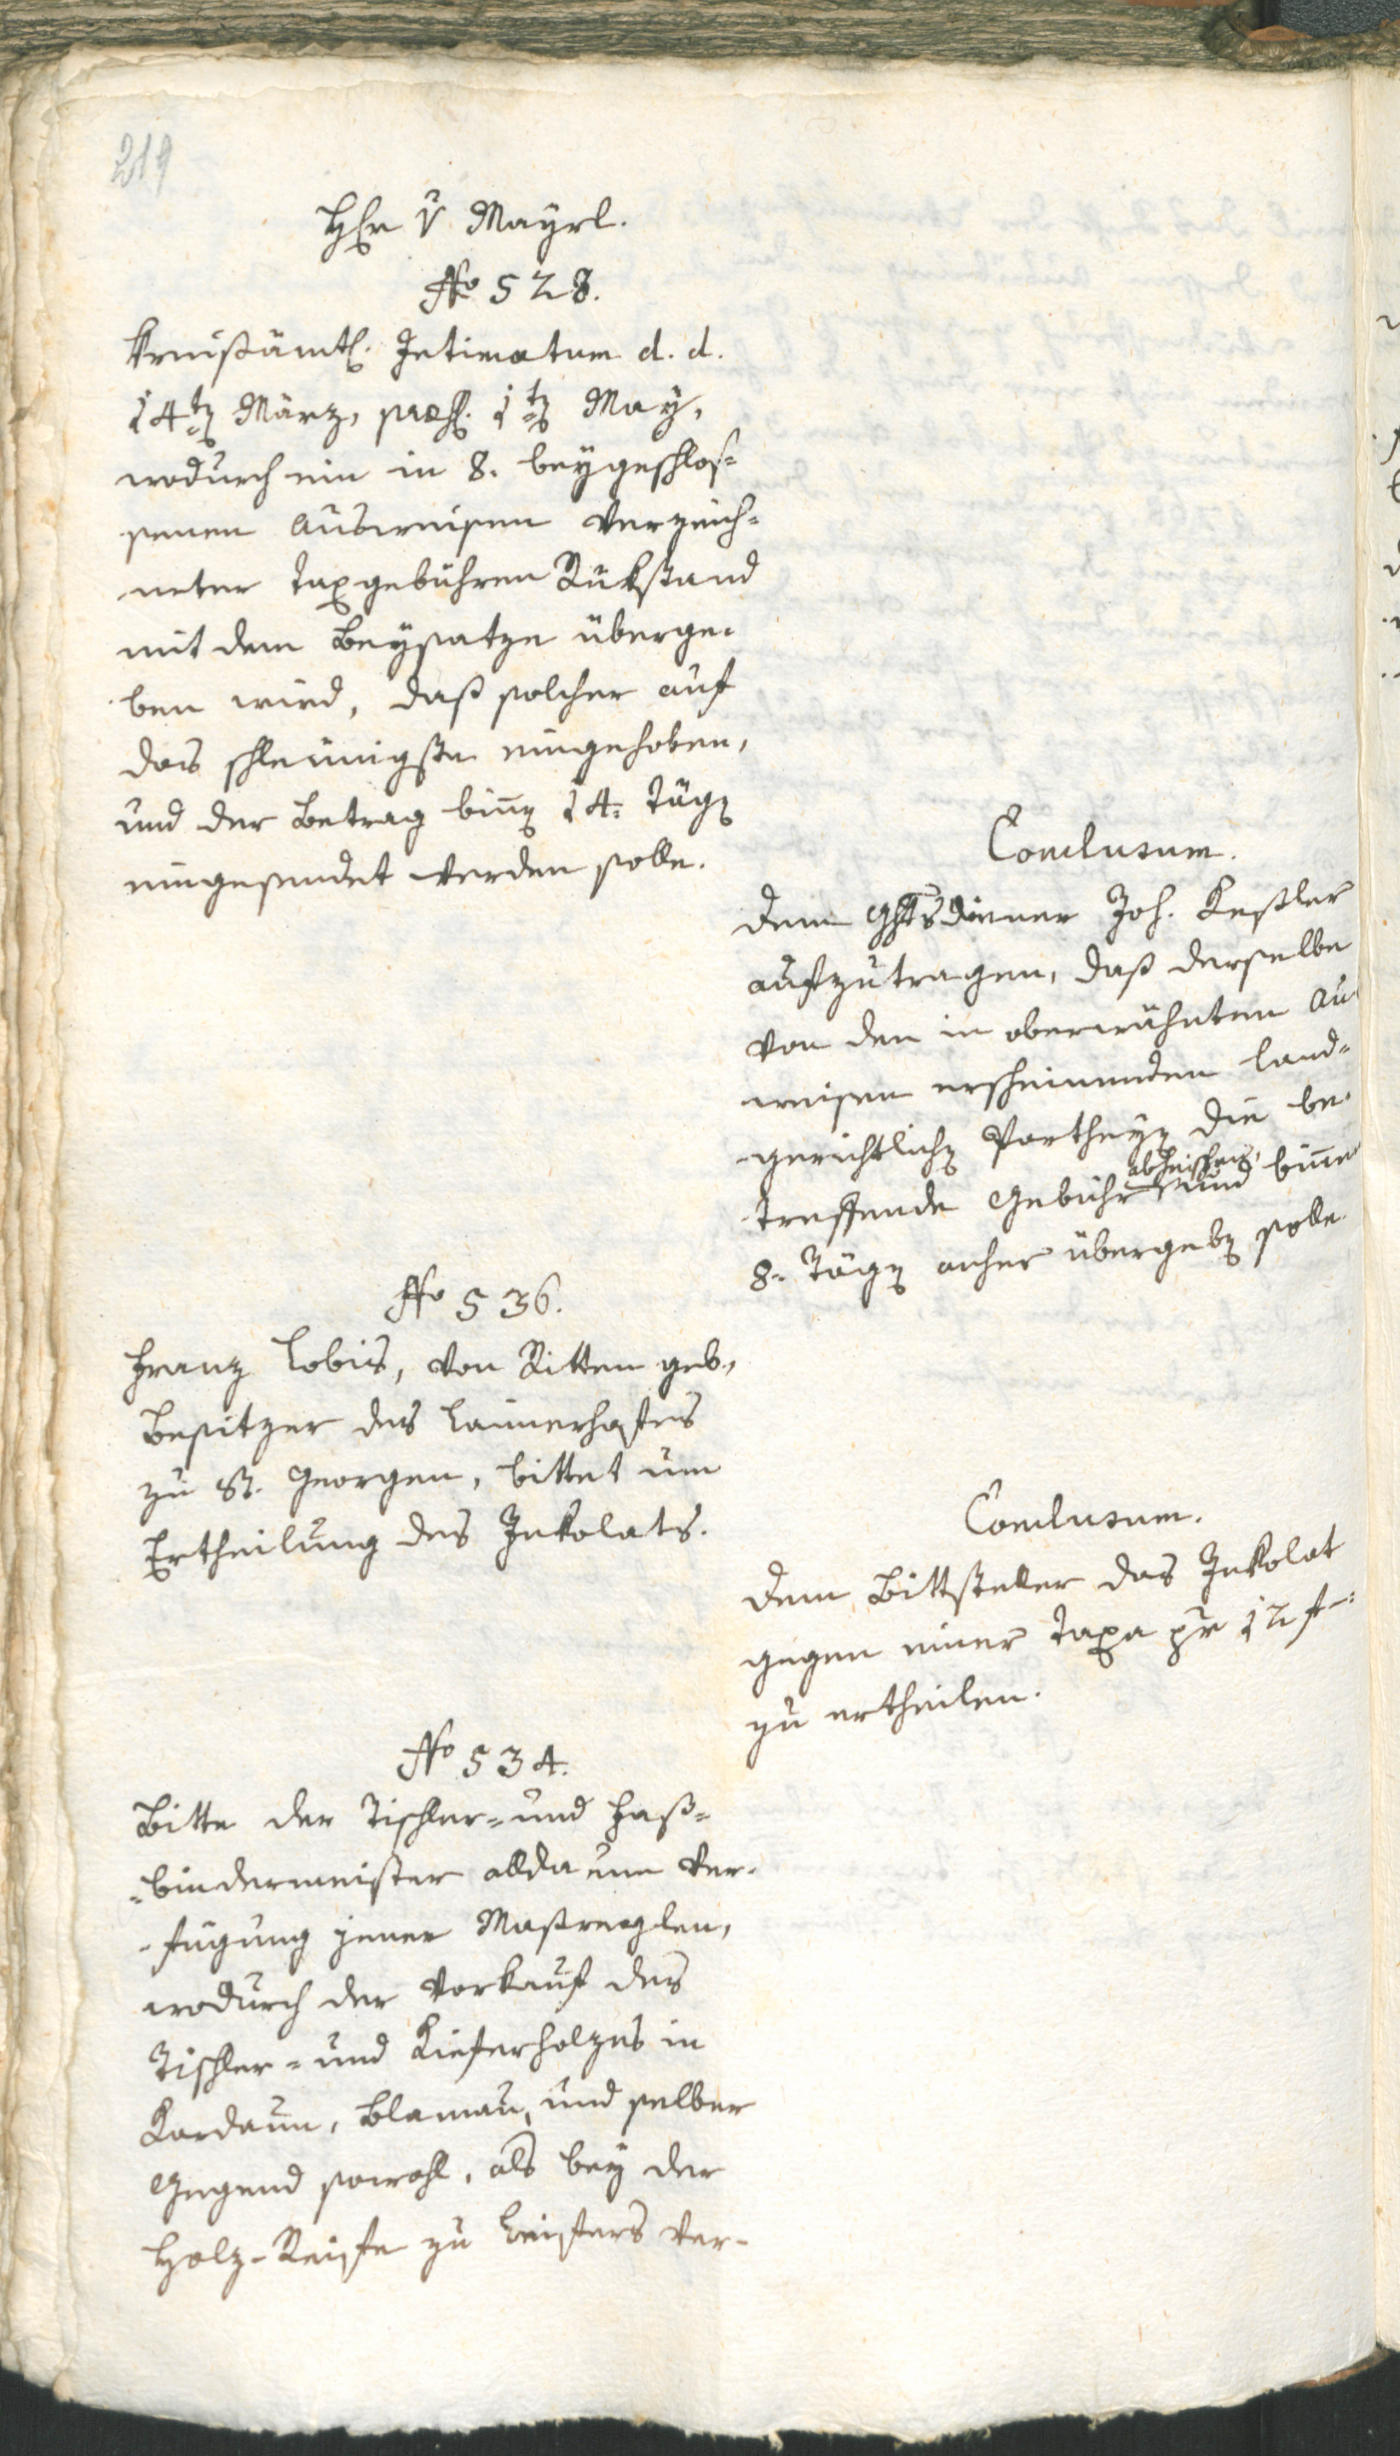 219
Hr v Mayrl.
No 528.
Kreisämtl. Intimatum d. d.
14ten März, præs. 1ten May,
wodurch ein in 8. beygeschlos=
senen Ausweisen verzeich=
neter Taxgebühren Rükstand
mit dem Beysatze überge=
ben wird, daß solcher auf
das schleunigste eingehoben,
und der Betrag binen 14. Tägen
eingesendet werden solle.
Conclusum.
Dem Ghtsdiener Joh. Keßler
aufzutragen, daß derselbe
von den in oberwähnten Au
weisen erscheinenden land=
gerichtlichen Partheyen die be=
treffende Gebühr abheischen, und binne
8. Tägen anher übergeben solle.
No 536.
Franz Lobis, von Ritten geb.,
Besitzer des Lainerhofes
zu St. Georgen, bittet um
Ertheilung des Inkolats.
Conclusum.
Dem Bittsteller das Inkolat
gegen einer Taxa pr 12 f
zu ertheilen.
No 534.
Bitte der Tischler= und Faß=
=bindermeister allda um Ver=
=fügung jener Maßreglen,
wodurch der Vorkauf des
Tischler= und Kieferholzes in
Kardaun, Blamau, und selber
Gegend sowohl, als bey der
Holz=Reife zu Leifers ver=